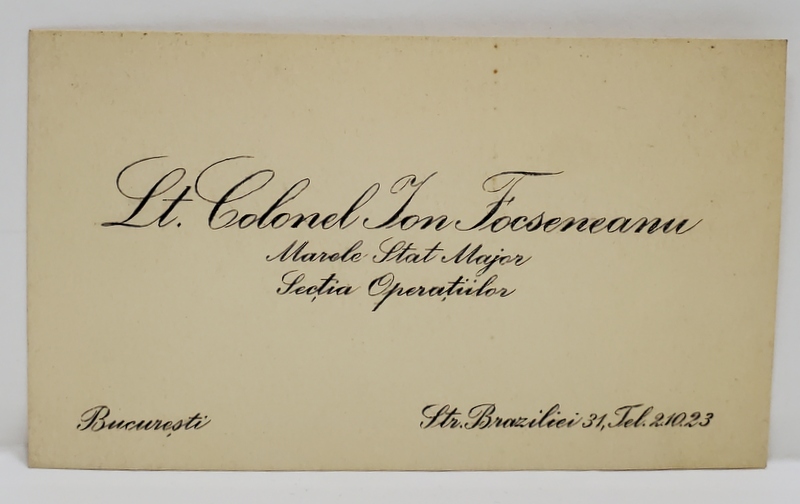 Lt. Colonel Ion Focseneanu
Marele Stat Major
Secția Operațiilor
București
Str. Braziliei 31, Tel. 2.10.23